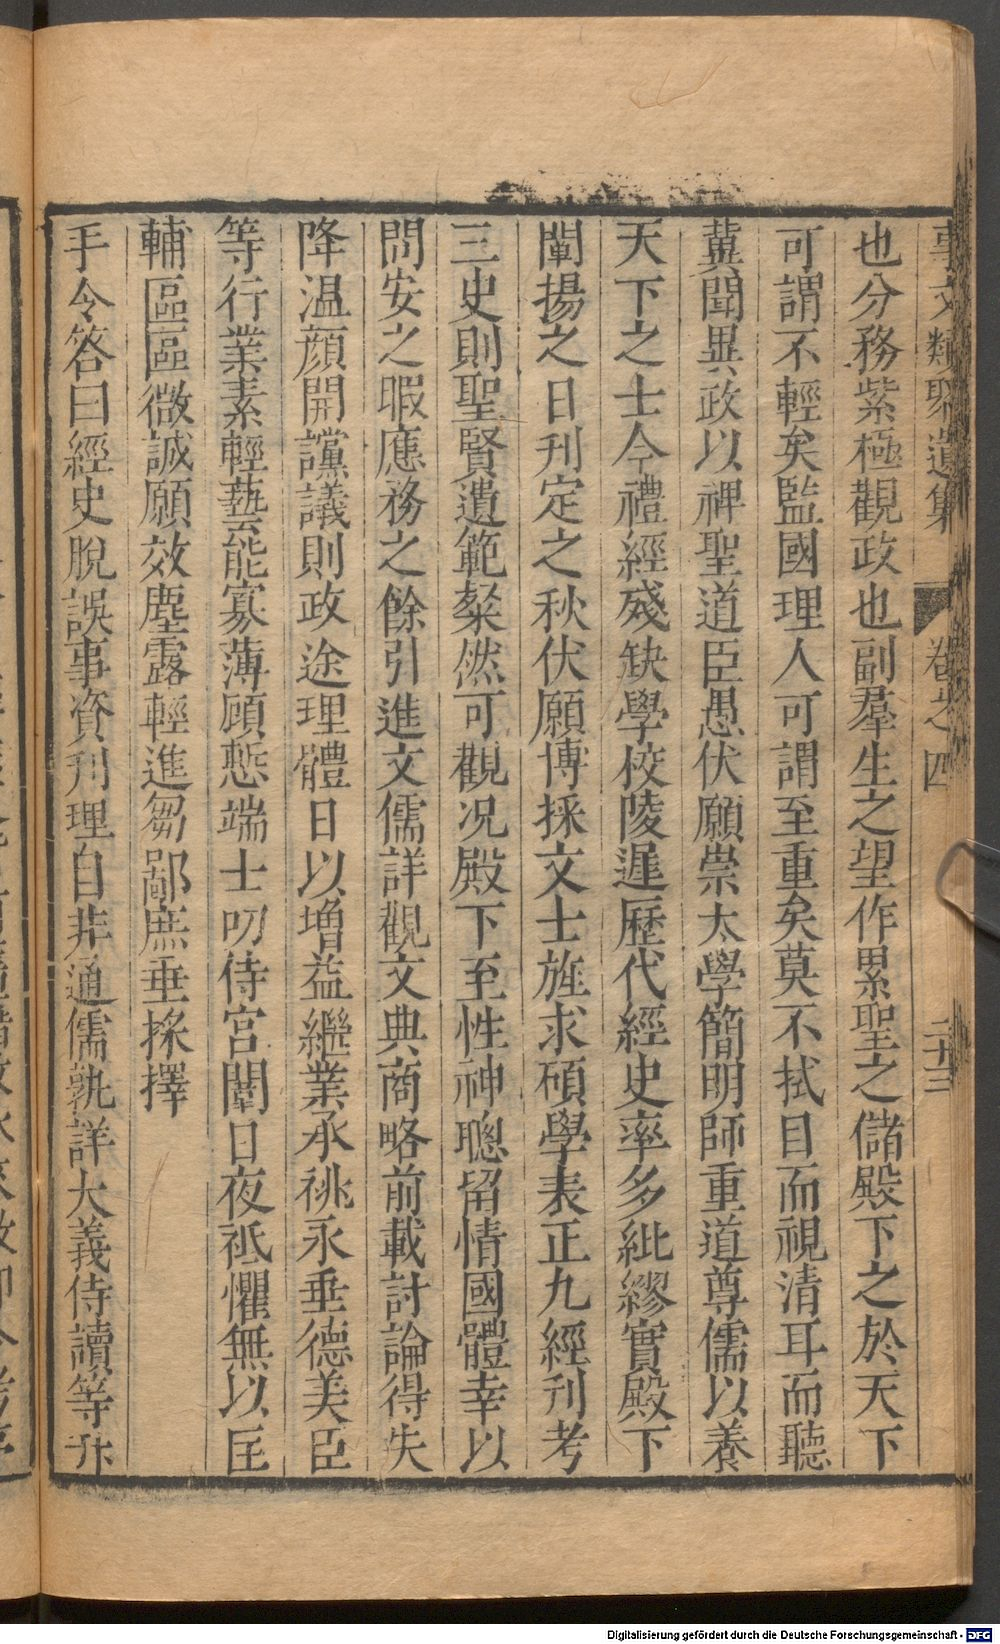 事文類聚遺集 卷之四 二十三
也分務紫極觀政也副羣生之望作累聖之儲殿下之於天下
可謂不輕矣監國理人可謂至重矣莫不拭目而視清耳而聽
冀聞異政以裨聖道臣愚伏願崇太學簡明師重道尊儒以養
天下之士今禮經殘缺學校陵遲歷代經史率多紕繆實殿下
闡揚之日刊定之秋伏願博採文士旌求碩學表正九經刊考
三史則聖賢遺範粲然可觀况殿下至性神聰留情國體幸以
問安之暇應務之餘引進文儒詳觀文典商略前載討論得失
降温顔開讜議則政途理體日以增益繼業承祧永垂德美臣
等行業素輕藝能寡薄顧慙端士叨侍宮闈日夜祗懼無以匡
輔區區微誠願效塵露輕進芻鄙庶垂採擇
手令答曰經史脫誤事資刋理自非通儒孰詳大義侍讀等升
Digitalisierung gefördert durch die Deutsche Forschungsgemeinschaft - DFG